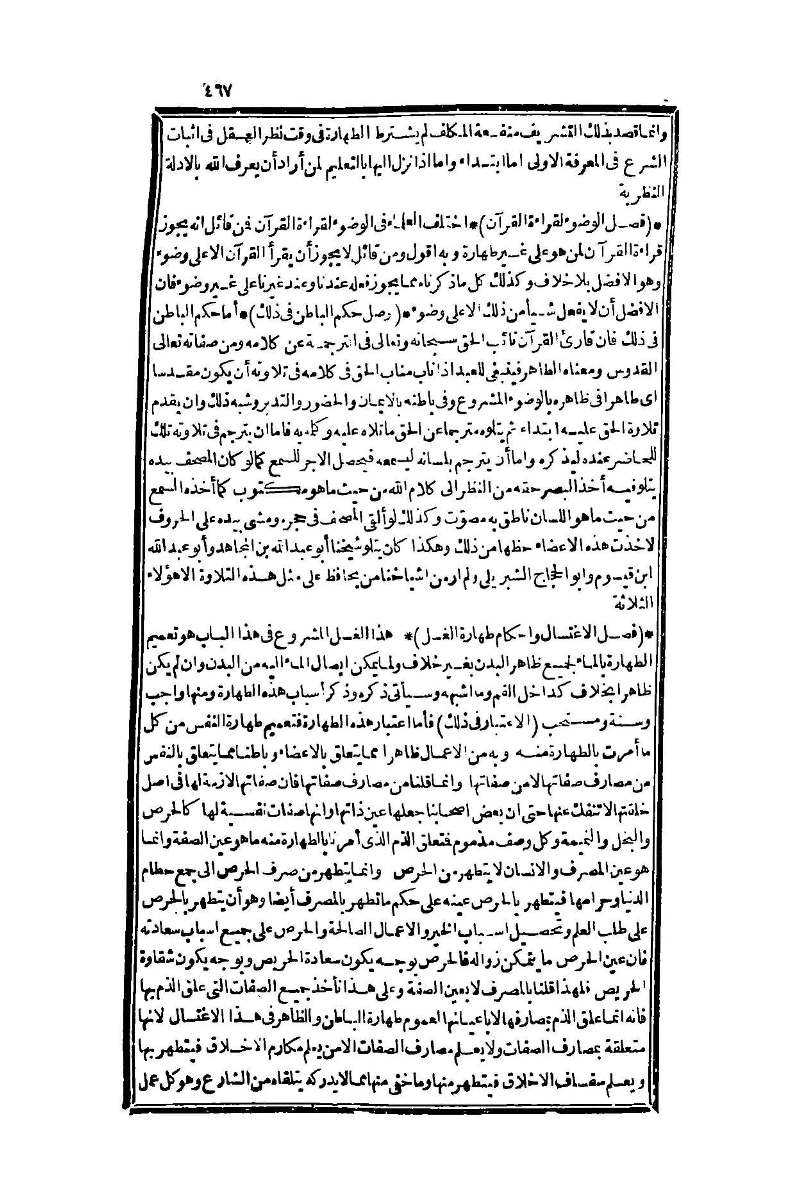 ٤٦٧
وانما قصد بذلك التشريف منفعة المكلف لم يشترط الطهارة فى وقت نظر العقل فى اثبات
الشرع فى المعرفة الاولى اما ابتداء واما اذا نزل اليها بالتعليم لمن أراد أن يعرف الله بالادلة
النظرية
*(فصل الوضوء لقراءة القرآن)* اختلف العلماء فى الوضوء لقراءة القرآن فن قائل انه يجوز
قراءة القرآن لمن هو على غير طهارة وبه اقول ومن قائل لا يجوز أن يقرأ القرآن الا على وضوء
وهو الافضل بلا خلاف وكذلك كل ما ذكرناه مما يجوز فعله عندنا وعند غيرنا على غير وضوء فان
الافضل أن لا يفعل شيأ من ذلك الا على وضوء *(وصل حكم الباطن فى ذلك)* أما حكم الباطن
فى ذلك فان قارئ القرآن نائب الحق سبحانه وتعالى فى الترجمة عن كلامه ومن صفاته تعالى
القدوس ومعناه الطاهر فينبغى للعبد اذا ناب مناب الحق فى كلامه فى تلاوته أن يكون مقدسا
اى طاهرا فى ظاهره بالوضوء المشروع وفى باطنه بالايمان والحضور والتدبر وشبه ذلك وان يقدم
تلاوة الحق عليه ابتداء ثم يتلوه مترجما عن الحق ما تلاه عليه وكلمه به فاما ان يترجم فى تلاوته تلك
للحاضر عنده ليذكره واما أن يترجم بلسانه ليسمعه فيحصل الاجر للسمع كما لو كان المصحف بيده
يتلو فيه أخذ البصر حقه من النظر الى كلام الله من حيث ما هو مكتوب كما أخذه السمع
من حيث ما هو اللسان ناطق به مصوّت وكذلك لو ألقى المصحف فى حجره ومشى بيده على الحروف
لاخذت هذه الاعضاء حظها من ذلك وهكذا كان يتلو شيخنا أبو عبد الله بن المجاهد وأبو عبد الله
ابن قيسوم وابو الحجاج الشبربلى ولم ار من اشياخنا من يحافظ على مثل هذه التلاوة الا هؤلاء
الثلاثة
*(فصل الاغتسال واحكام طهارة الغسل)* هذا الغسل المشروع فى هذا الباب هو تعميم
الطهارة بالماء لجميع ظاهر البدن بغير خلاف ولما يمكن ايصال الماء اليه من البدن وان لم يكن
ظاهرا بخلاف كداخل الفم وما اشبهه وسيأتى ذكره وذكر أسباب هذه الطهارة ومنها واجب
وسنة ومستحب (الاعتبار فى ذلك) فأما اعتبار هذه الطهارة فتعميم طهارة النفس من كل
ما أمرت بالطهارة منه وبه من الاعمال ظاهرا مما يتعلق بالاعضاء وباطنا مما يتعلق بالنفس
من مصارف صفاتها لا من صفاتها وانما قلنا من مصارف صفاتها فان صفاتها لازمة لها فى اصل
خلقتها لا تنفك عنها حتى ان بعض اصحابنا جعلها عين ذاتها وانها صفات نفسية لها كالحرص
والبخل والنميمة وكل وصف مذموم فتعلق الذم الذى أمرنا بالطهارة منه ما هو عين الصفة وانما
هو عين المصرف والانسان لا يتطهر من الحرص وانما يتطهر من صرف الحرص الى جمع حطام
الدنيا وحرامها فيتطهر بالحرص عينه على حكم ما تطهر بالمصرف أيضا وهو أن يتطهر بالحرص
على طلب العلم وتحصيل اسباب الخير والاعمال الصالحة والحرص على جميع اسباب سعادته
فان عين الحرص ما يتمكن زواله فالحرص بوجه يكون سعادة الحريص وبوجه يكون شقاوة
الحريص فلهذا قلنا بالمصرف لا بعين الصفة وعلى هذا تأخذ جميع الصفات التى علق الذم بها
فانه انما علق الذم بمصارفها لا باعيانها لعموم طهارة الباطن والظاهر فى هذا الاغتسال لانها
متعلقة بمصارف الصفات ولا يعلم مصارف الصفات الا من يعلم مكارم الاخلاق فيتطهر بها
ويعلم سفساف الاخلاق فيتطهر منها وما خفى منها مما لا يدركه يتلقاه من الشارع وهو كل عمل